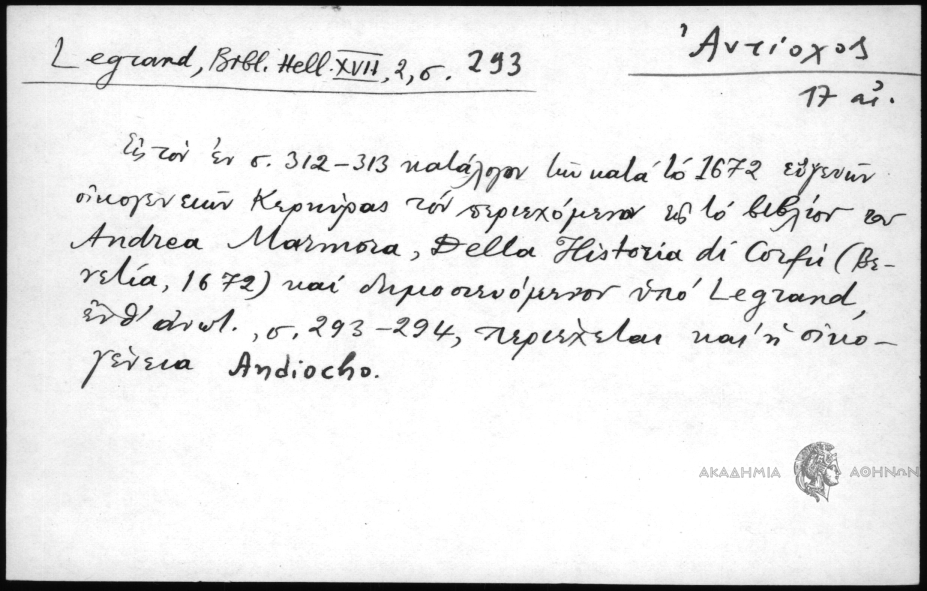 Legrand, Bibl. Hell. XVII, 2, σ. 293
Ἀντίοχος
17 αἰ.
Εἰς τὸν ἐν σ. 312-313 κατάλογον τῶν κατὰ τὸ 1672 εὐγενῶν
οἰκογενειῶν Κερκύρας τὸν περιεχόμενον εἰς τὸ βιβλίον του
Andrea Marmora, Della Historia di Corfú (Βε-
νετία, 1672) καὶ δημοσιευόμενον ὑπὸ Legrand,
ἔνθ' ἀνωτ., σ. 293-294, περιέχεται καὶ ἡ οἰκο-
γένεια Andiocho.
ΑΚΑΔΗΜΙΑ ΑΘΗΝΩΝ